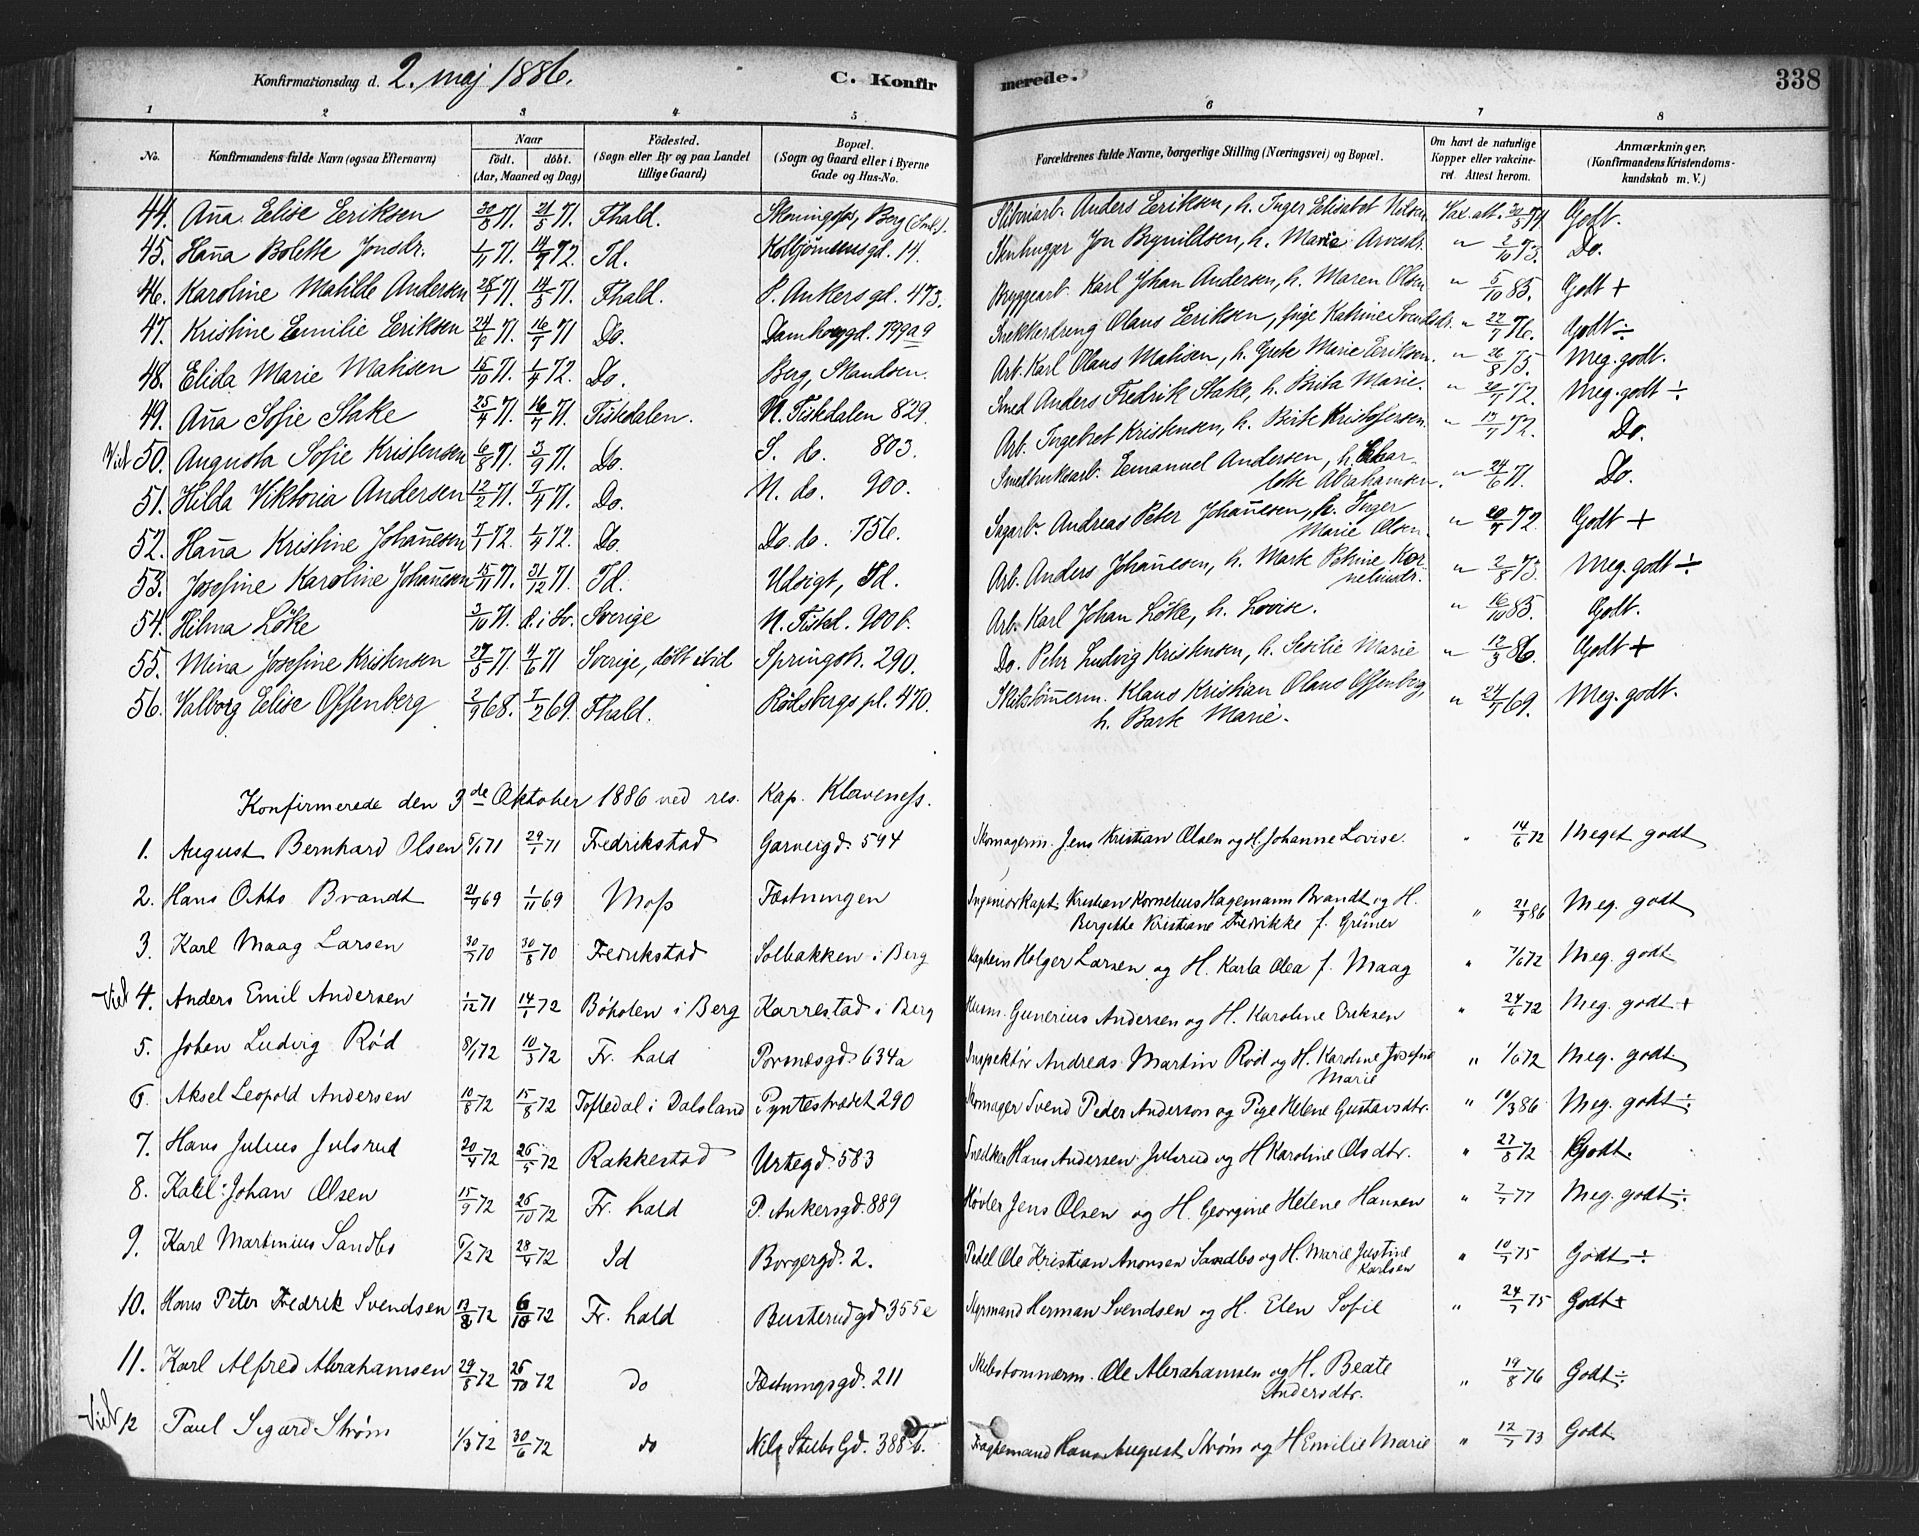 Konfirmationsdag d. 2. maj 1886. C. Konfirmerede. 338
1 2 3 4 5 6 7 8
No. Konfirmandens fulde Navn (ogsaa Efternavn) Naar födt. döbt. (Aar, Maaned og Dag) Födested. (Sogn eller By og paa Landet tillige Gaard) Bopæl. (Sogn og Gaard eller i Byerne Gade og Hus-No. Forældrenes fulde Navne, borgerlige Stilling (Næringsvei) og Bopæl. Om havt de naturlige Kopper eller vakcineret. Attest herom. Anmærkninger. (Konfirmandens Kristendomskundskab m. V.)
44. Ana Elise Eeriksen 30/3 71. 21/5 71. Fhald. Berg (Sml.). Anders Eeriksen, h. Inger Elisabet Nilsen Vax. att. 71 Godt.
45. Hana Bolette Jonsdr. 1/11 71. 14/4 72. Id. Kolbjørnsensgd. 14. Stenhugger Jon Brynildsen, h. Marie Arvesdr. " 2/10 73. Do.
46. Karoline Matilde Andersen 28/1 71. 14/5 71. Fhald. P. Ankersgd. 473. Bryggearb. Karl Johan Andersen, h. Maren Olsen " 5/10 85. Godt +
47. Kristine Emilie Eeriksen 24/6 71. 16/7 71 Do. Damhavegd. 799a9 Snekkerdreng Olaus Eeriksen, pige Katrine Svendsdr. " 22/7 76. Godt ÷
48. Elida Marie Mathsen 15/10 71. 1/4 72. Do. Berg, Skandsen. Arb. Karl Olaus Mathsen, h. Grete Marie Eeriksen. " 26/8 75. Meg. godt.
49. Ana Sofie Stake 25/4 71. 16/7 71. Tistedalen. N. Tistedalen 829. Smed Anders Fredrik Stake, h. Brita Marie. " 72. Meg. godt ÷
Viet 50. Augusta Sofie Kristensen 6/8 71. 3/9 71. Do. S. do. 803. Arb. Ingebret Kristensen, h. Berte Kristoffersen " 17/7 72. Do.
51. Hilda Viktoria Andersen 12/2 71. 7/4 71. Do. N. do. 900. Smedbruksarb. Emanuel Andersen, h. Charlotte Abrahamsen. " 24/6 71. Do.
52. Hana Kristine Johanesen 7/1 72. 1/4 72. Do. Do. do. 756. Sagarb. Andreas Peter Johanesen, h. Inger Marie Olsen. " 72. Godt +
53. Josefine Karoline Johanesen 15/11 71. 31/12 71. Id. Udsigt, Id. Arb. Anders Johanesen, h. Marte Petrine Korneliusdr. " 2/8 73. Meg. godt ÷
54. Hilma Löke 3/10 71. d. i Sv. Sverige N. Tistd. 900b. Arb. Karl Johan Löke, h. Lovise. " 16/10 85. Godt.
55. Mina Josefine Kristensen 27/5 71 4/6 71 Sverige, döbt ibid Springsti. 290. Do. Peter Ludvig Kristensen, h. Sesilie Marie " 12/3 86. Godt +
56. Valborg Elise Offenberg 2/9 68. 7/2 69. Fhald. Rødsbergs pl. 470. Skibstömerm. Klaus Kristian Olaus Offenberg, h. Bart Marie. " 24/7 69. Meg. godt.
Konfirmerede den 3de Oktober 1886 ved res. Kap. Klaveness.
1. August Bernhard Olsen 5/1 71 29/1 71 Fredrikstad Garverigd. 594 Skomagerm. Jens Kristian Olsen og H. Johanne Lovise. " 14/6 72 Meget godt
2. Hans Otto Brandt 21/9 69 1/11 69 Moss Fæstningen Ingeniørkapt. Kristian Kornelius Hagemann Brandt og H. Bergitte Kristiane Fredrikke f. Grüner " 21/9 86 Meg. godt
3. Karl Maag Larsen 30/7 70 30/8 70 Fredrikstad Solbakken i Berg Kaptein Holger Larsen og H. Karla Olea f. Maag " 7/6 72 Meg. godt
Viet 4. Anders Emil Andersen 1/12 71 14/1 72 Böholen i Berg Karrestad i Berg Husm. Gunerius Andersen og H. Karoline Eriksen " 24/6 72 Meg. godt +
5. Johan Ludvig Rød 8/1 72 10/3 72 Fr. hald Pormesgd. 634a Inspektør Andreas Martin Rød og H. Karoline Josefine Marie " 1/6 72 Meg. godt
6. Aksel Leopold Andersen 10/8 72 15/8 72 Töftedal i Dalsland Pyntestrædet 290 Skomager Svend Peder Anderson og Pige Helene Gustavsdtr. " 19/3 86 Meg. godt ÷
7. Hans Julius Julsrud 20/4 72 26/5 72 Rakkestad Urtegd. 583 Snedker Hans Andersen Julsrud og H Karoline Olsdtr. " 27/8 72 Godt.
8. Johan Olsen 15/9 72 26/10 72 Fr. hald P. Ankersgd. 889 Høvler Jens Olsen og H. Georgine Helene Hansen " 2/7 77 Meg. godt ÷
9. Karl Martinius Sandbo 5/2 72 28/4 72 Id Borgergd. 2. Pedel Ole Kristian Anonsen Sandbo og H. Marie Justine Karlsen " 10/7 75 Godt ÷
10. Hans Peter Fredrik Svendsen 13/8 72 6/10 72 Fr. hald Busterudgd 355e Myrmand Herman Svendsen og H. Elen Sofie " 24/7 75 Godt +
11. Karl Alfred Abrahamsen 29/8 72 26/10 72 do Fæstningsgd. 211 Skibstommerm. Ole Abrahamsen og H. Beate Andersdtr. " 19/8 76 Godt ÷
Viet 12 Paul Sigard Strøm 1/3 72 30/6 72 do Nils Stubs Gd. 388b. Fragtemand Hans August Strøm og H Emilie Marie " 12/7 73 Godt